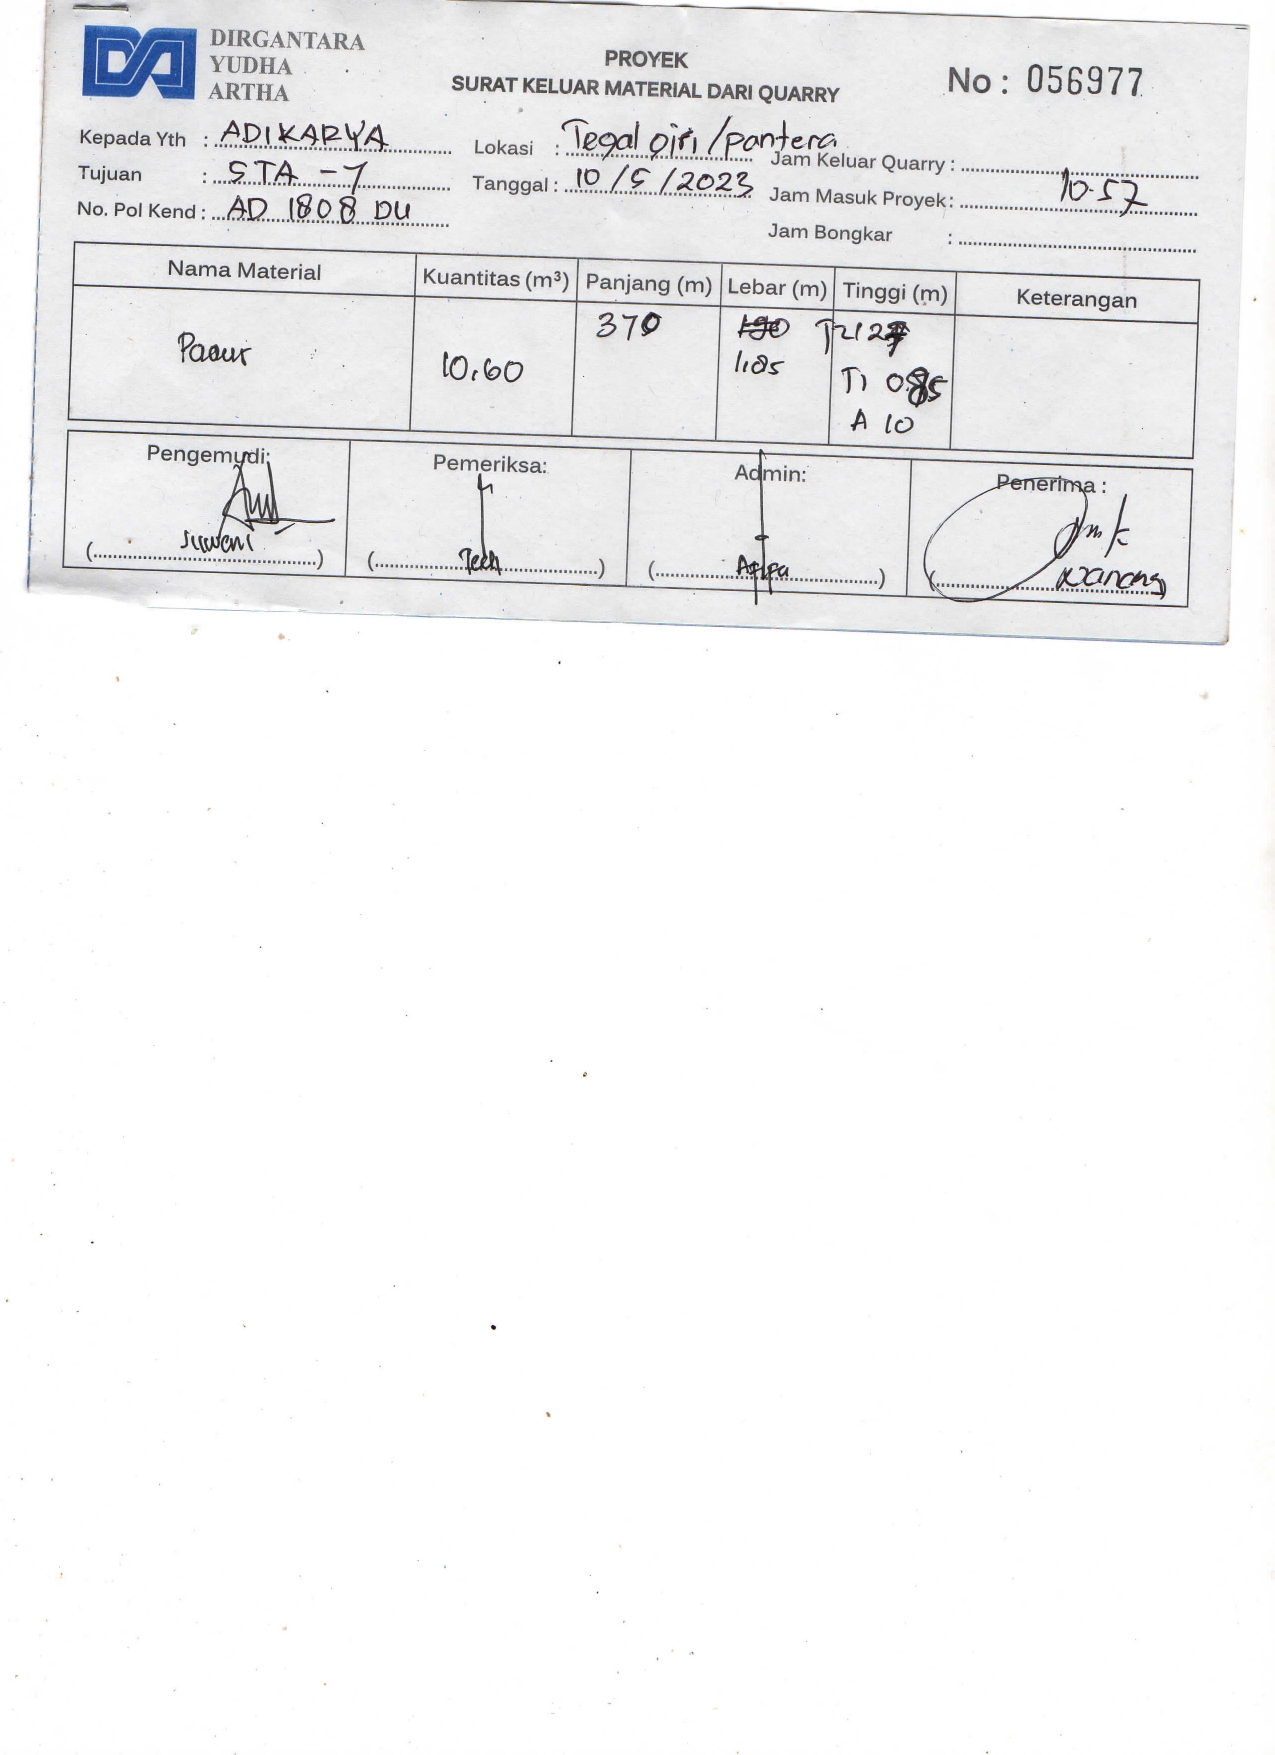 DIRGANTARA
YUDHA
ARTHA
PROYEK
SURAT KELUAR MATERIAL DARI QUARRY
No : 056977
Kepada Yth : ADIKARYA
Tujuan : STA - 7
No. Pol Kend : AD 1808 DU
Lokasi : Tegal giri / pantera
Tanggal : 10 / 5 / 2023
Jam Keluar Quarry :
Jam Masuk Proyek : 10.57
Jam Bongkar :
Nama Material Kuantitas (m³) Panjang (m) Lebar (m) Tinggi (m) Keterangan
370 T2 127
10.60 1.85
T1 0.85
A 10
Pengemudi: Pemeriksa: Admin: Penerima :
(Suweni) (Tech) (Afifa) (Wanang)